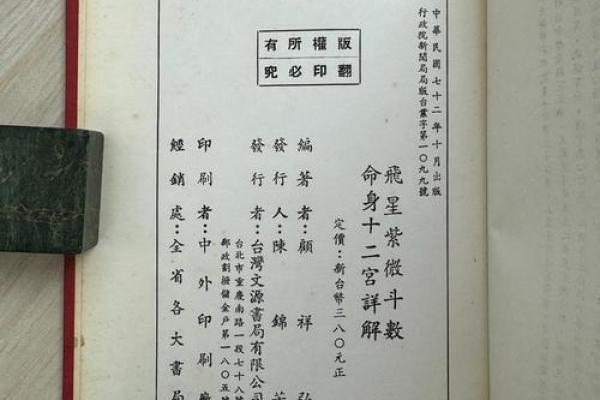 中華民國七十二年十月出版
行政院新聞局局版台業字第一〇九九號
飛星紫微斗數
命身十二宮詳解
定價：新台幣三八〇元正
版權所有
翻印必究
編著者：顧祥弘
發行人：陳錦
發行者：台灣文源書局有限公司
台北市重慶南路一段七十八號
郵政劃撥儲金戶第一八〇五號
印刷者：中外印刷廠
經銷處：全省各大書局